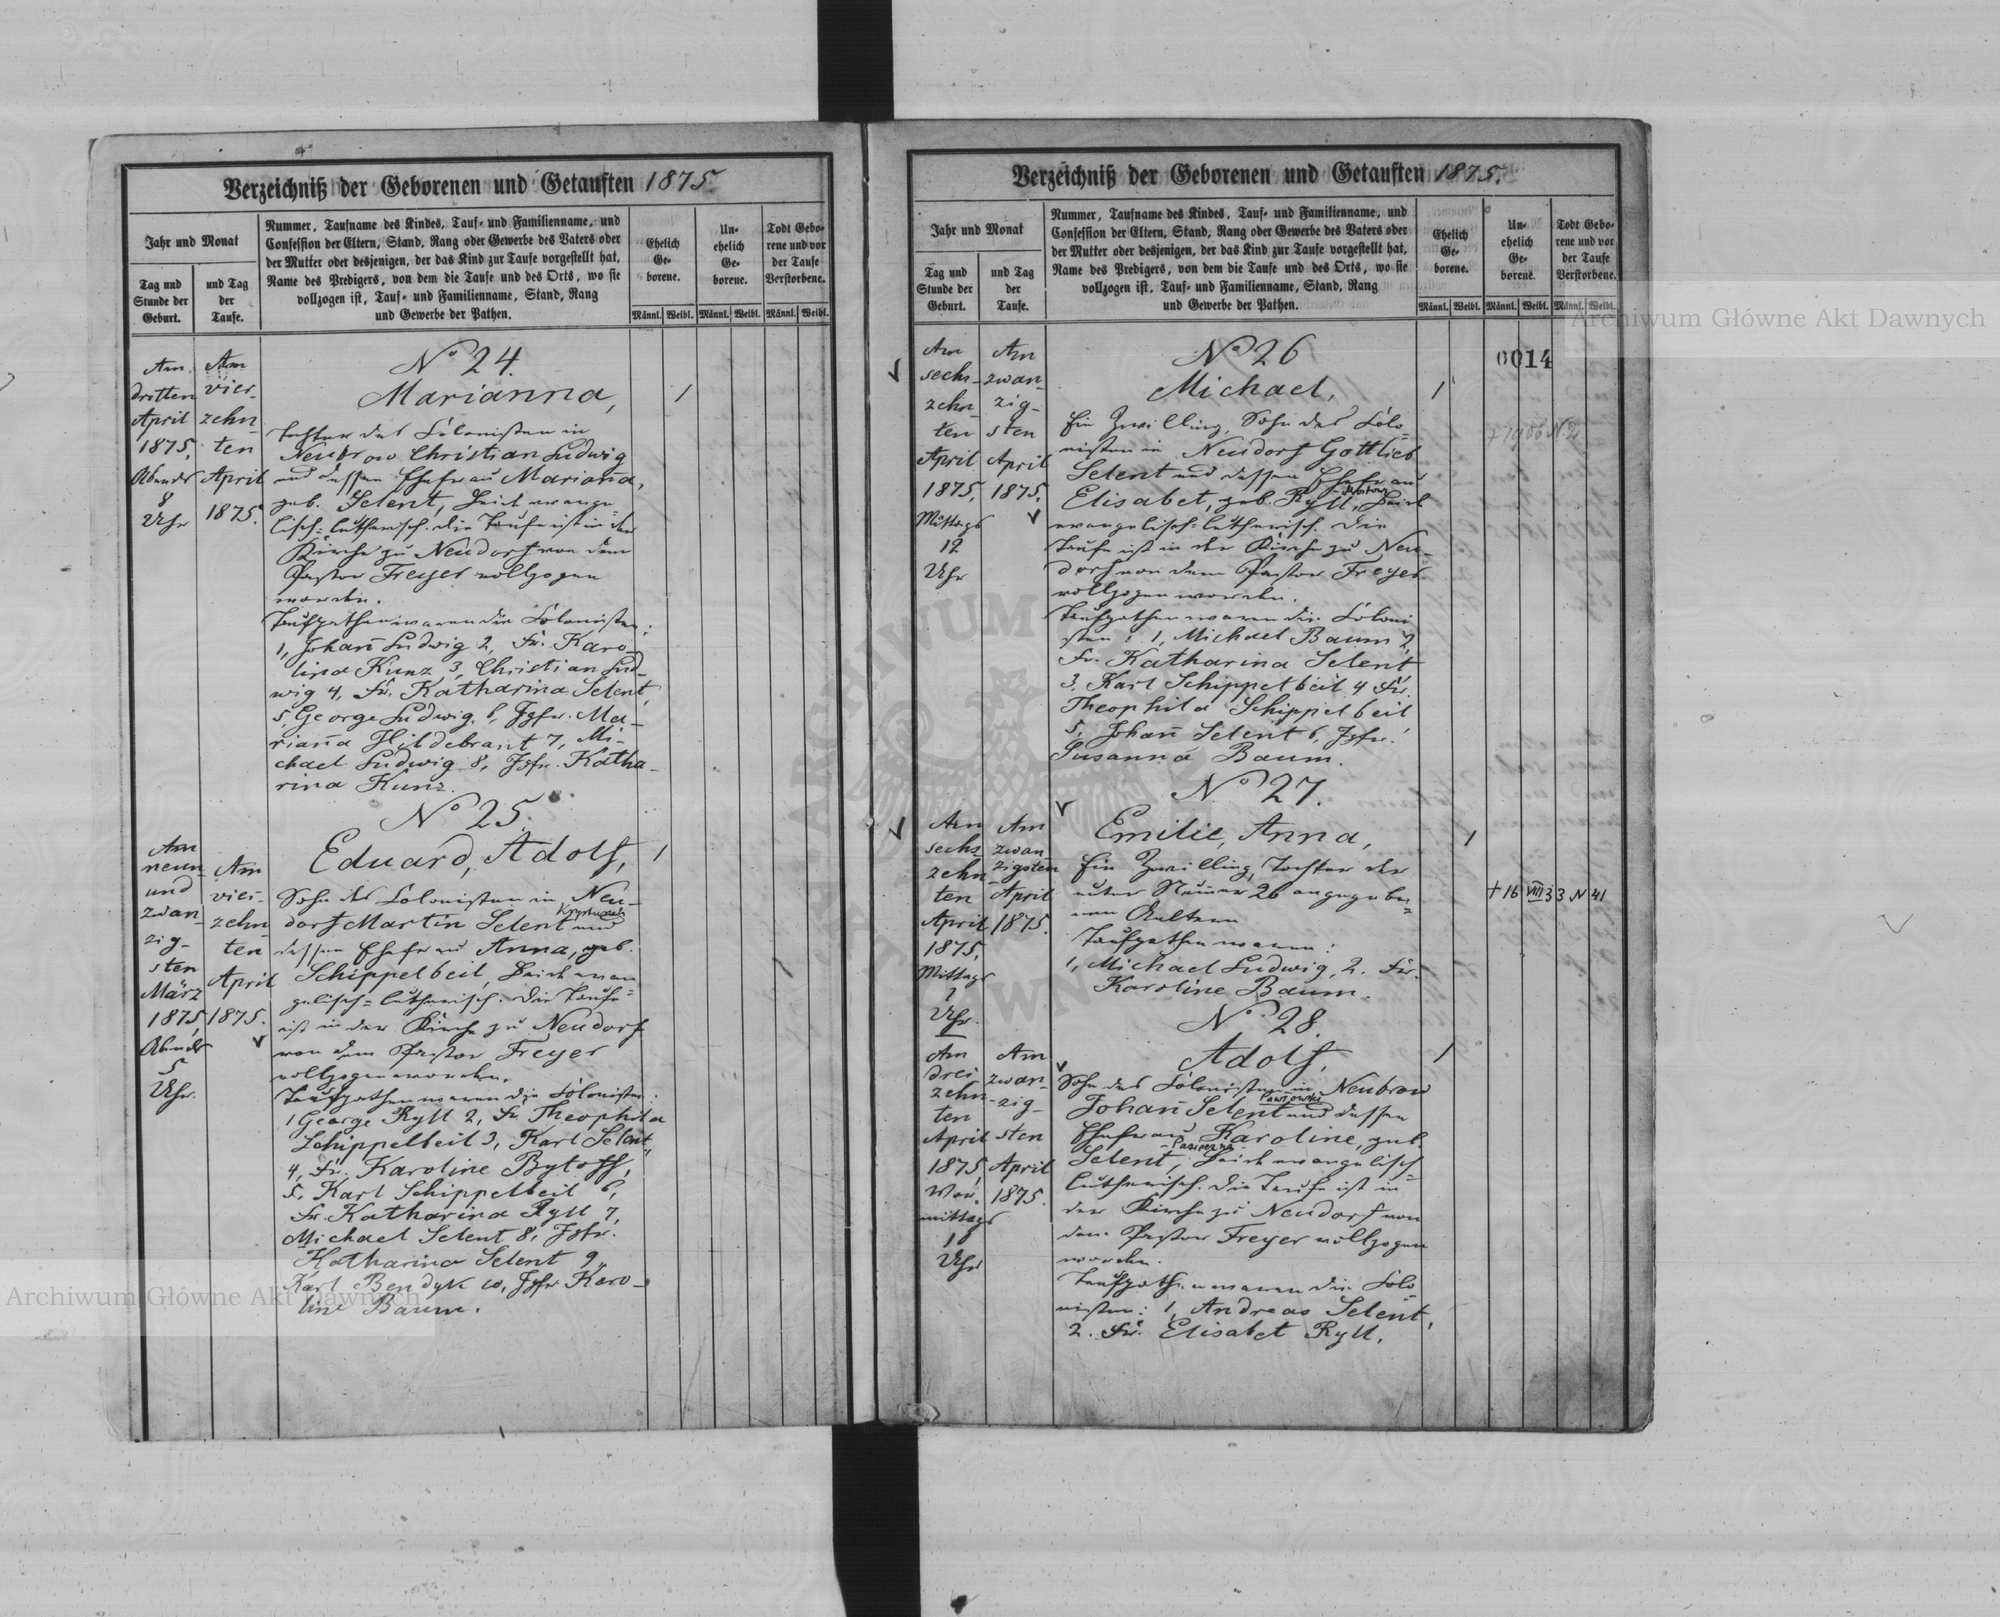 Verzeichniß der Geborenen und Getauften 1875.
Jahr und Monat
Tag und
Stunde der
Geburt.
und Tag
der
Taufe.
Nummer, Taufname des Kindes, Tauf- und Familienname, und
Confession der Eltern, Stand, Rang oder Gewerbe des Vaters oder
der Mutter oder desjenigen, der das Kind zur Taufe vorgestellt hat,
Name des Predigers, von dem die Taufe und des Orts, wo sie
vollzogen ist, Tauf- und Familienname, Stand, Rang
und Gewerbe der Pathen.
Ehelich
Ge-
borene.
Un-
ehelich
Ge-
borene.
Todt Gebo-
rene und vor
der Taufe
Verstorbene.
Männl. Weibl. Männl. Weibl. Männl. Weibl.
Am
dritten
April
1875,
Abends
8
Uhr
Am
vier-
zehn-
ten
April
1875.
No 24.
Marianna,
1
Tochter des Colonisten in
Neubrow Christian Ludwig
und dessen Ehefrau Marianna,
geb. Selent, Beide evange-
lisch-lutherisch. Die Taufe ist in der
Kirche zu Neudorf von dem
Pastor Freyer vollzogen
worden.
Taufpathen waren die Colonisten:
1, Johann Ludwig 2, Fr. Karo-
lina Kunz 3, Christian Lud-
wig 4, Fr. Katharina Selent,
5, George Ludwig 6, Jgfr. Ma-
rianna Hildebrant 7, Mi-
chael Ludwig 8, Jgfr. Katha-
rina Kunz.
Am
neun-
und
zwan-
zig-
sten
März
1875,
Abends
5
Uhr.
Am
vier-
zehn-
ten
April
1875.
No 25.
Eduard, Adolf,
1
Sohn des Colonisten in Neu-
dorf Martin Selent und
dessen Ehefrau Anna, geb.
Schippelbeil, Beide evan-
gelisch-lutherisch. Die Taufe
ist in der Kirche zu Neudorf
von dem Pastor Freyer
vollzogen worden.
Taufpathen waren die Colonisten:
1 George Ryll 2, Fr. Theophila
Schippelbeil 3, Karl Selent,
4, Fr. Karoline Bytoff,
5, Karl Schippelbeil 6,
Fr. Katharina Ryll 7,
Michael Selent 8, Jgfr.
Katharina Selent 9,
Karl Bendyk 10, Jgfr. Karo-
line Baum.
Verzeichniß der Geborenen und Getauften 1875.
Jahr und Monat
Tag und
Stunde der
Geburt.
und Tag
der
Taufe.
Nummer, Taufname des Kindes, Tauf- und Familienname, und
Confession der Eltern, Stand, Rang oder Gewerbe des Vaters oder
der Mutter oder desjenigen, der das Kind zur Taufe vorgestellt hat,
Name des Predigers, von dem die Taufe und des Orts, wo sie
vollzogen ist, Tauf- und Familienname, Stand, Rang
und Gewerbe der Pathen.
Ehelich
Ge-
borene.
Un-
ehelich
Ge-
borene.
Todt Gebo-
rene und vor
der Taufe
Verstorbene.
Männl. Weibl. Männl. Weibl. Männl. Weibl.
0014
Am
sechs-
zehn-
ten
April
1875,
Mittags
12
Uhr
Am
zwan-
zig-
sten
April
1875.
No 26
Michael,
1
Ein Zwilling, Sohn des Colo-
nisten in Neudorf Gottlieb
Selent und dessen Ehefrau
Elisabet, geb. Ryll, Beide
evangelisch-lutherisch. Die
Taufe ist in der Kirche zu Neu-
dorf von dem Pastor Freyer
vollzogen worden.
Taufpathen waren die Coloni-
sten: 1, Michael Baum 2,
Fr. Katharina Selent
3. Karl Schippelbeil 4 Fr.
Theophila Schippelbeil
5, Johann Selent 6, Jgfr.
Susanna Baum.
Am
sechs-
zehn-
ten
April
1875,
Mittags
1
Uhr.
Am
zwan-
zigsten
April
1875.
No 27.
Emilie, Anna,
1
Ein Zwilling, Tochter der
unter Numer 26 angegebe-
nen Aeltern
† 16 VIII 33 N 41
Taufpathen waren:
1, Michael Ludwig, 2. Fr.
Karoline Baum.
Am
drei-
zehn-
ten
April
1875,
Vor-
mittags
10
Uhr
Am
zwan-
zig-
sten
April
1875.
No 28.
Adolf,
1
Sohn des Colonisten in Neubrow
Johann Selent und dessen
Ehefrau Karoline, geb.
Selent, Beide evangelisch-
lutherisch. Die Taufe ist in
der Kirche zu Neudorf von
dem Pastor Freyer vollzogen
worden.
Taufpathen waren die Colo-
nisten: 1, Andreas Selent,
2. Fr. Elisabet Ryll,
Archiwum Główne Akt Dawnych
Archiwum Główne Akt Dawnych